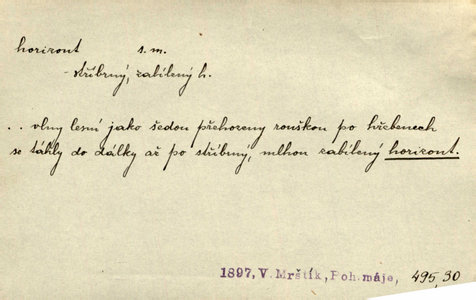 horizont s. m.
- stříbrný, zabílený h.
. . vlny lesní jako šedou přehozeny rouškou po hřebenech
se táhly do dálky až po stříbrný, mlhou zabílený horizont.
1897, V. Mrštík, Poh. máje, 495, 30